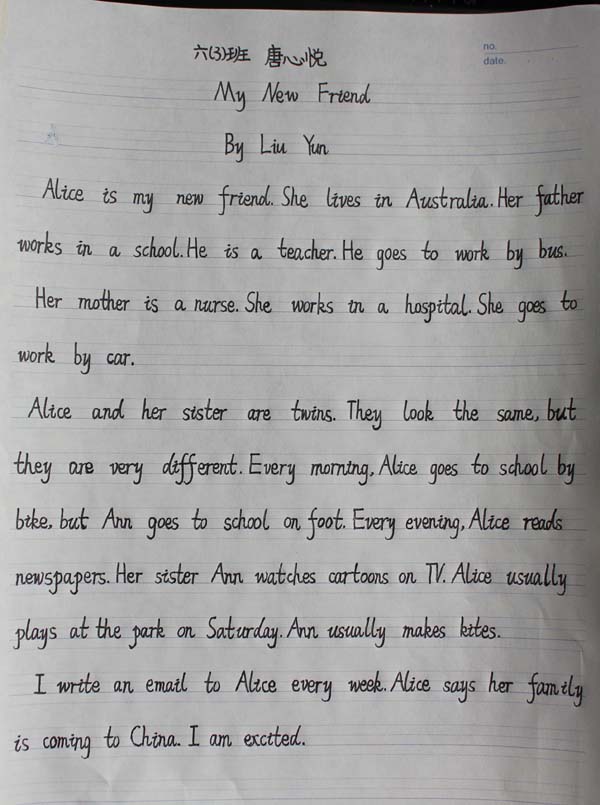 no.
六(3)班 唐心悦
date.
My New Friend
By Liu Yun
Alice is my new friend. She lives in Australia. Her father
works in a school. He is a teacher. He goes to work by bus.
Her mother is a nurse. She works in a hospital. She goes to
work by car.
Alice and her sister are twins. They look the same, but
they are very different. Every morning, Alice goes to school by
bike, but Ann goes to school on foot. Every evening, Alice reads
newspapers. Her sister Ann watches cartoons on TV. Alice usually
plays at the park on Saturday. Ann usually makes kites.
I write an email to Alice every week. Alice says her family
is coming to China. I am excited.